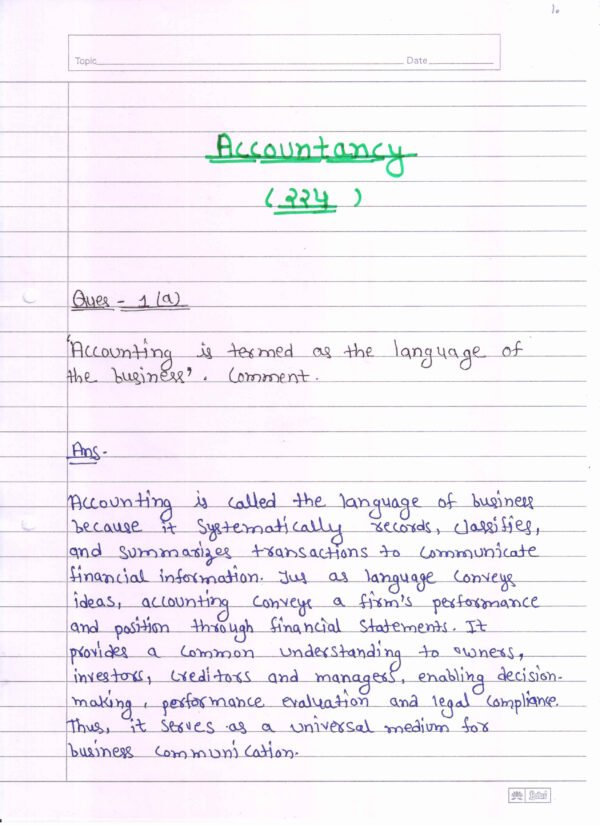 1.
Topic Date
Accountancy
(२२५)
Ques - 1 (a)
'Accounting is termed as the language of
the business'. Comment.
Ans.
Accounting is called the language of business
because it systematically records, classifies,
and summarizes transactions to communicate
financial information. Jus as language conveys
ideas, accounting conveys a firm's performance
and position through financial statements. It
provides a common understanding to owners,
investors, creditors and managers, enabling decision-
making, performance evaluation and legal compliance.
Thus, it serves as a universal medium for
business communication.